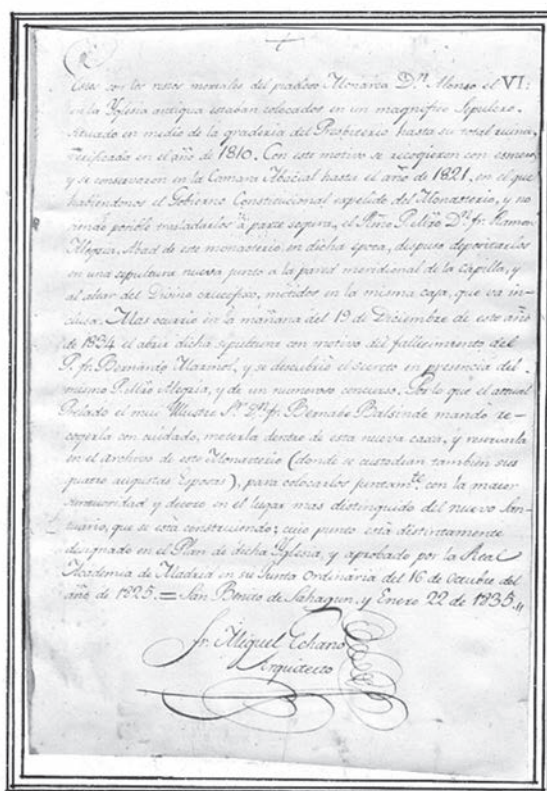 Estos son los restos mortales del piadoso Monarca D.n Alonso el VI:
en la Yglesia antigua estaban colocados en un magnifico Sepulcro,
situado en medio de la graderia del Presbiterio hasta su total ruina,
verificada en el año de 1810. Con este motivo se recogieron con esmero,
y se conservaron en la Camara Abacial hasta el año de 1821, en el que
habiendonos el Gobierno Constitucional expelido del Monasterio, y no
posible trasladarlos á parte segura, el D.n fr. Ramon
Alegria, Abad de este monasterio en dicha época, dispuso depositarlos
en una sepultura nueva junto a la pared meridional de la Capilla, y
al altar del Divino crucifixo, metidos en la misma caja, que va in-
clusa. Mas ocurrio en la mañana del 19 de Diciembre de este año
de 1834 el abrir dicha sepultura con motivo del fallecimiento del
P. fr. Bernardo Marmol, y se descubrió el secreto en presencia del
mismo Alegria, y de un numeroso concurso. Por lo que el actual
Prelado el mui Illustre S.r D.n fr. Bernabe Balsinde mandó re-
cogerla con cuidado, meterla dentro de esta nueva caxa, y reservarla
en el archivo de este Monasterio (donde se custodian tambien sus
quatro augustas Esposas), para colocarlos juntam.te con la maior
y decoro en el lugar mas distinguido del nuevo San-
tuario, que se está construiendo; cuio punto está distintamente
designado en el Plan de dicha Yglesia, y aprobado por la Real
Academia de Madrid en su Junta Ordinaria del 16 de Octubre del
año de 1825. = San Benito de Sahagun, y Enero 22 de 1835.
fr. Miguel Echano
Arquitecto